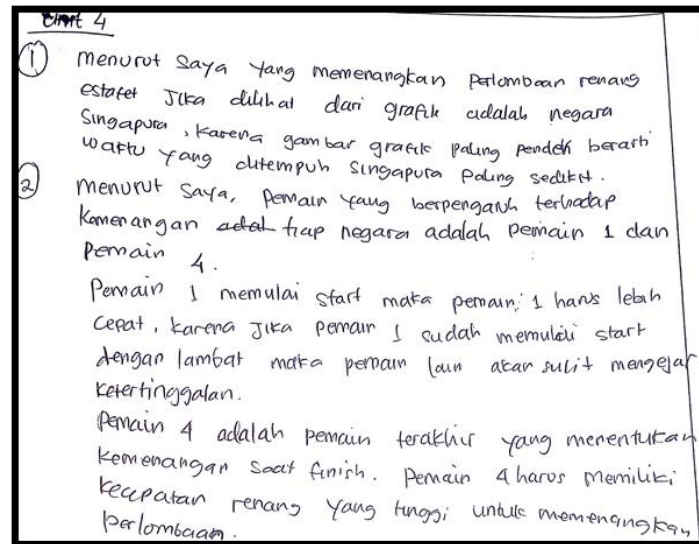 4
① menurut saya yang memenangkan perlombaan renang
estafet jika dilihat dari grafik adalah negara
Singapura, karena gambar grafik paling pendek berarti
waktu yang ditempuh singapura paling sedikit.
② menurut saya, pemain yang berpengaruh terhadap
kemenangan adal tiap negara adalah pemain 1 dan
pemain 4.
Pemain 1 memulai start maka pemain 1 harus lebih
cepat, karena jika pemain 1 sudah memulai start
dengan lambat maka pemain lain akan sulit mengejar
ketertinggalan.
Pemain 4 adalah pemain terakhir yang menentukan
kemenangan saat finish. Pemain 4 harus memiliki
kecepatan renang yang tinggi untuk memenangkan
perlombaan.